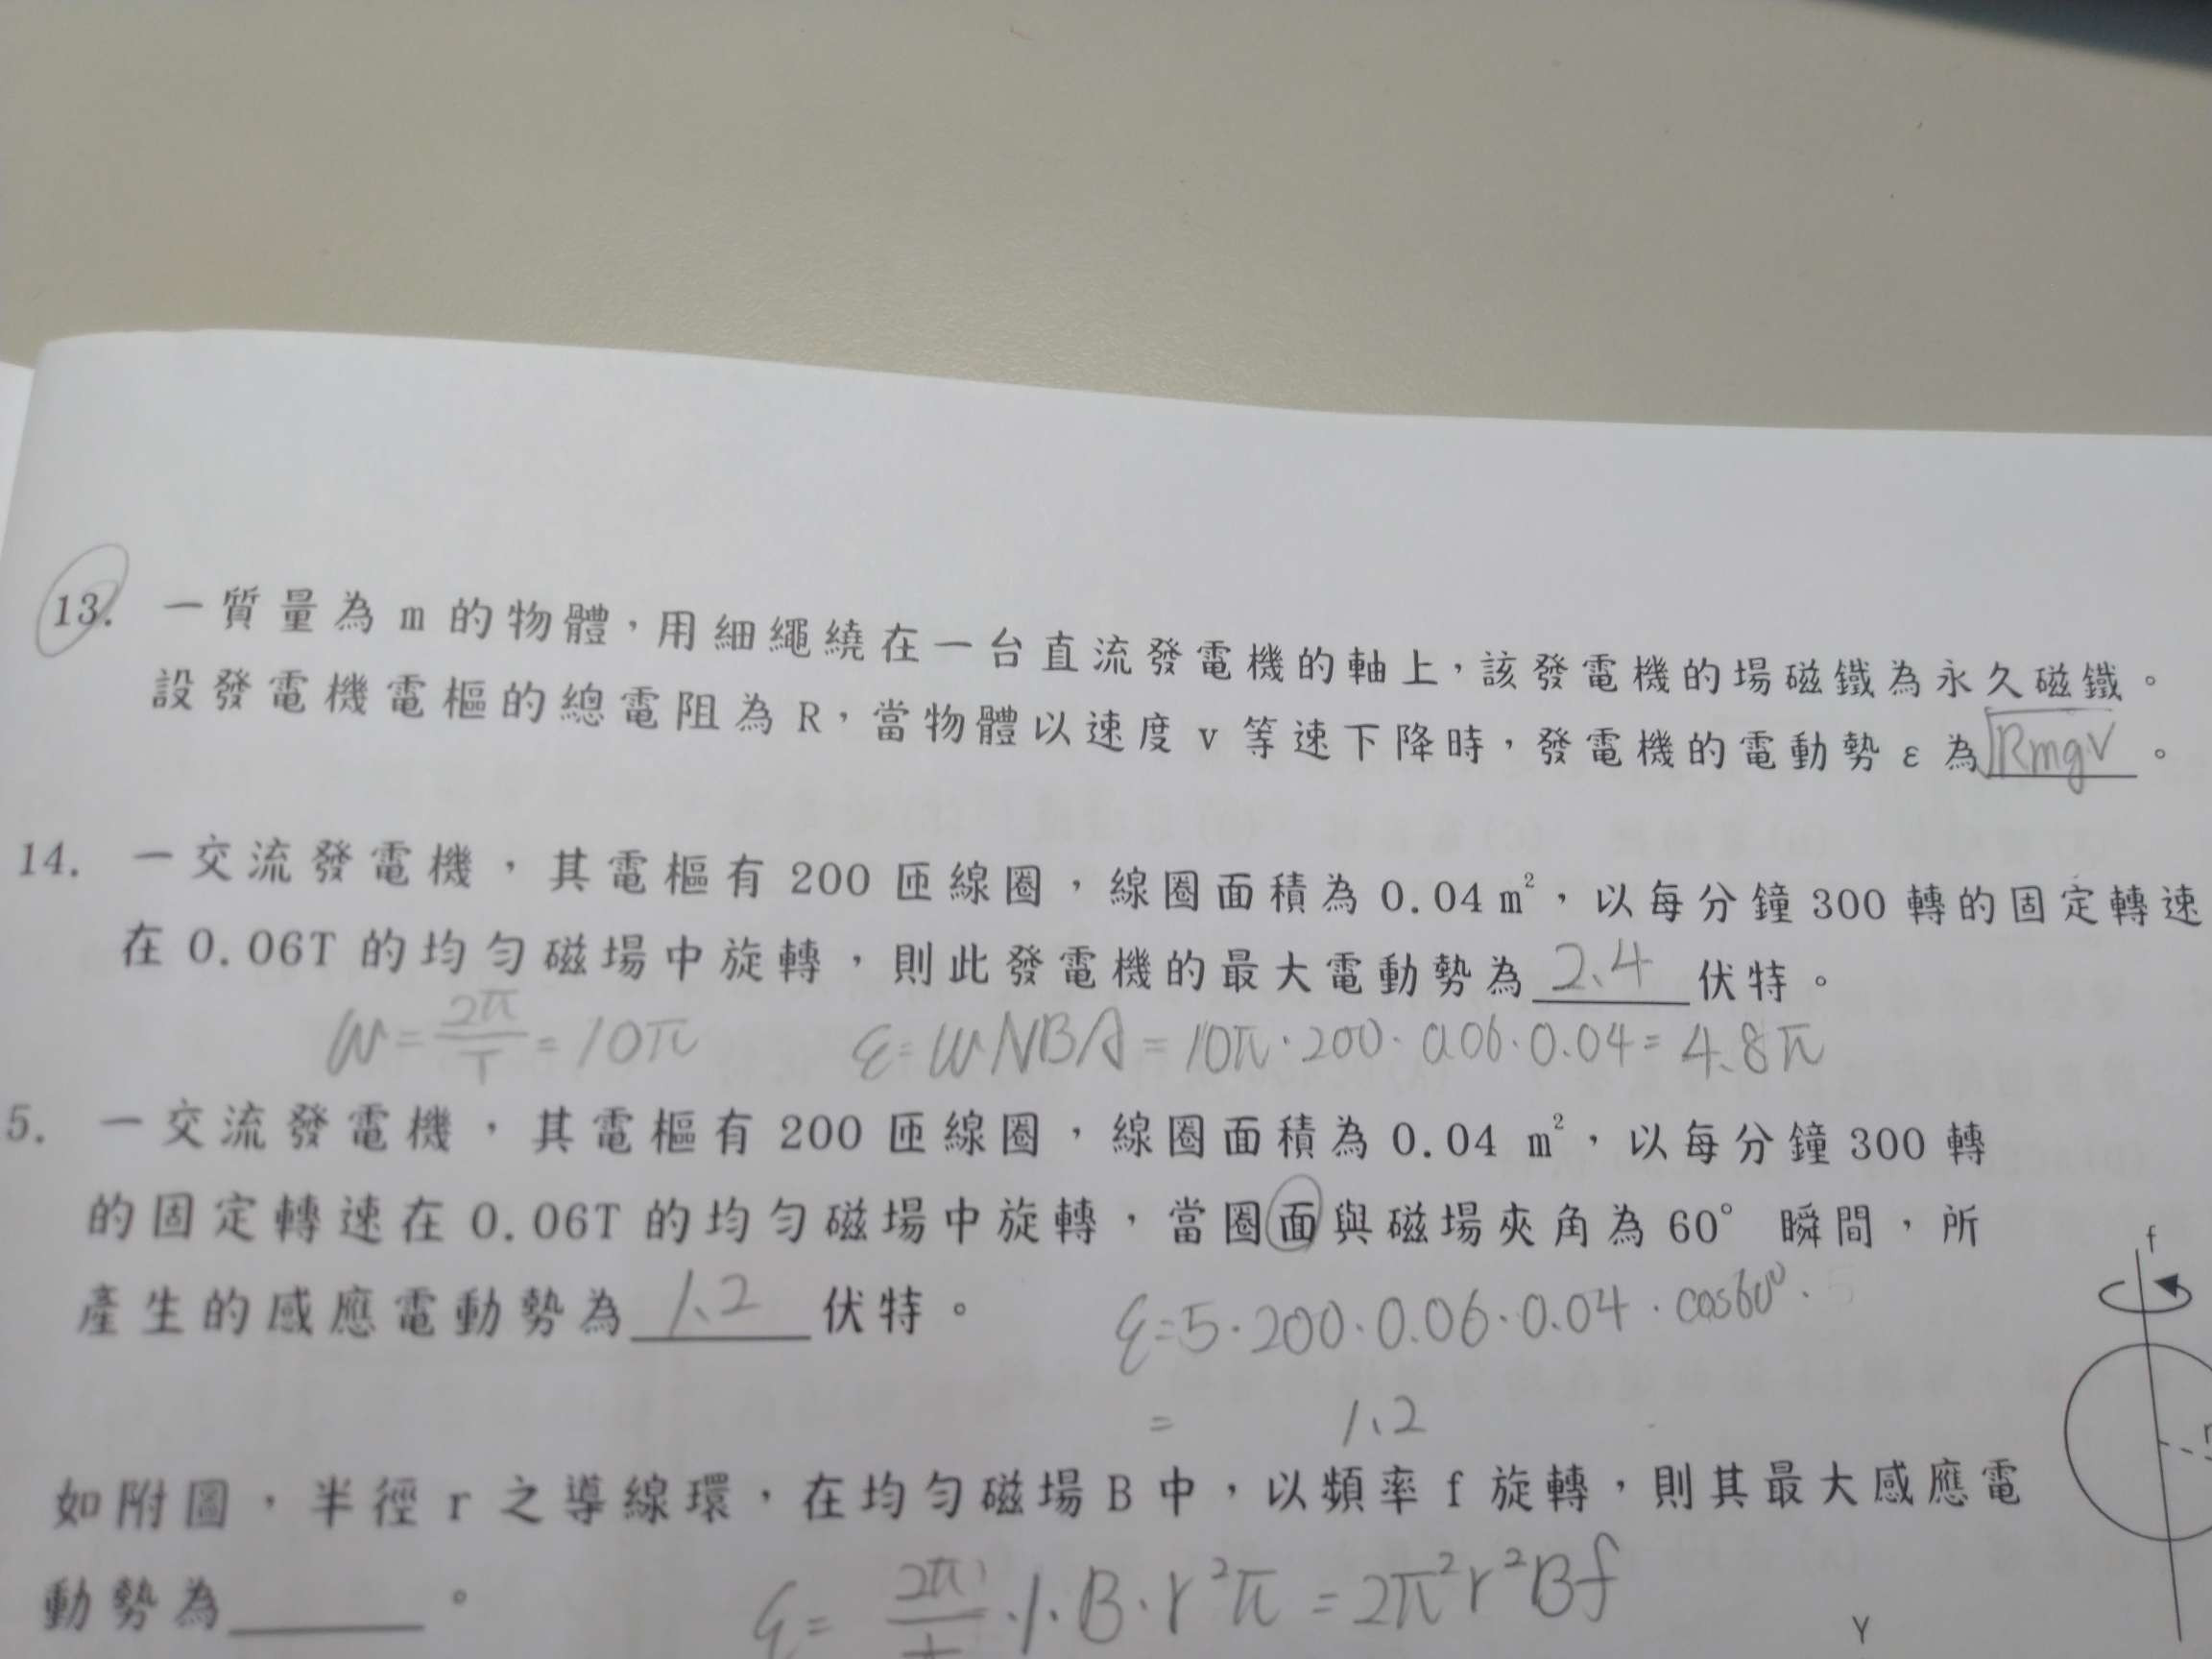 13. 一質量為 m 的物體，用細繩繞在一台直流發電機的軸上，該發電機的場磁鐵為永久磁鐵。
設發電機電樞的總電阻為 R，當物體以速度 v 等速下降時，發電機的電動勢 ε 為 √RmgV 。
14. 一交流發電機，其電樞有 200 匝線圈，線圈面積為 0.04 m²，以每分鐘 300 轉的固定轉速
在 0.06T 的均勻磁場中旋轉，則此發電機的最大電動勢為 2.4 伏特。
W = 2π/T = 10π ε = WNBA = 10π·200·0.06·0.04 = 4.8π
5. 一交流發電機，其電樞有 200 匝線圈，線圈面積為 0.04 m²，以每分鐘 300 轉
的固定轉速在 0.06T 的均勻磁場中旋轉，當圈面與磁場夾角為 60° 瞬間，所
f
產生的感應電動勢為 1.2 伏特。 ε=5·200·0.06·0.04·cos60°·
= 1.2
r
如附圖，半徑 r 之導線環，在均勻磁場 B 中，以頻率 f 旋轉，則其最大感應電
動勢為＿＿＿。 ε = 2π/t ·1·B·r²π = 2π²r²Bf
Y